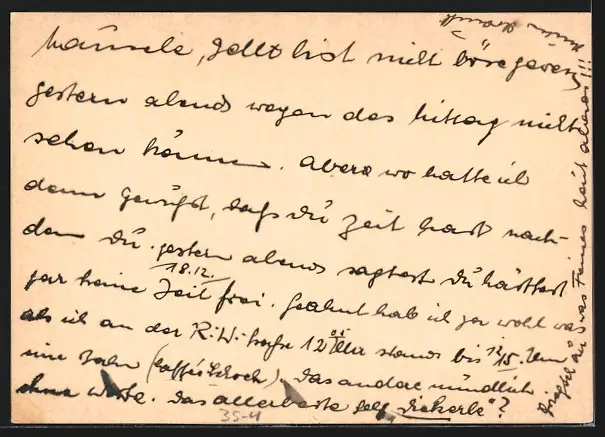 Mäusele, gellt bist nicht böse gewesen
gestern abend wegen des Mittag nicht
sehen können. Aber wo hatte ich
denn gewußt, daß du Zeit hast nach-
dem du gestern abend sagtest du hättest
18.12.
gar keine Zeit frei. Geahnt hab ich ja wohl was
als ich an der R.W. 12 Uhr stand bis 12 15. Um
eine Bahn (Kaffee). Das andere mündlich
ohne Worte. Das allerbeste gell "Dickerle"?
35-4
was Feines heut abend!!!